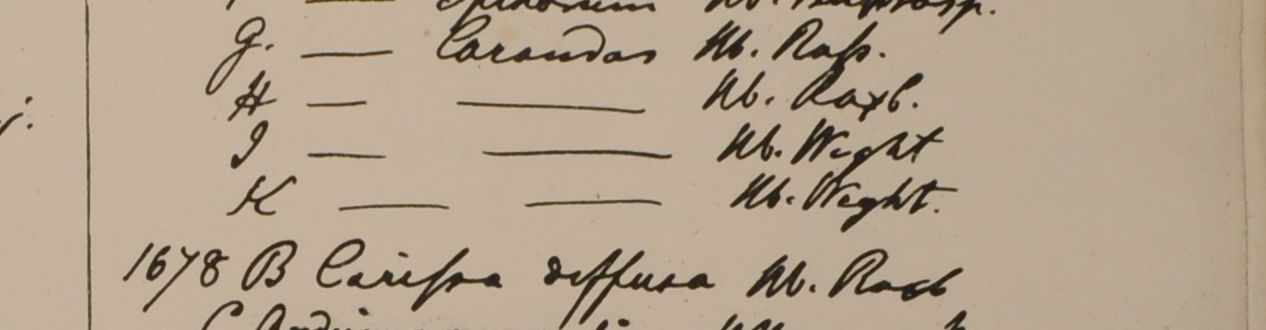 G. — Carandas Hb. Russ.
H — — Hb. Roxb.
I — — Hb. Wight
K — — Hb. Wight.
1678 B Carissa diffusa Hb. Roxb